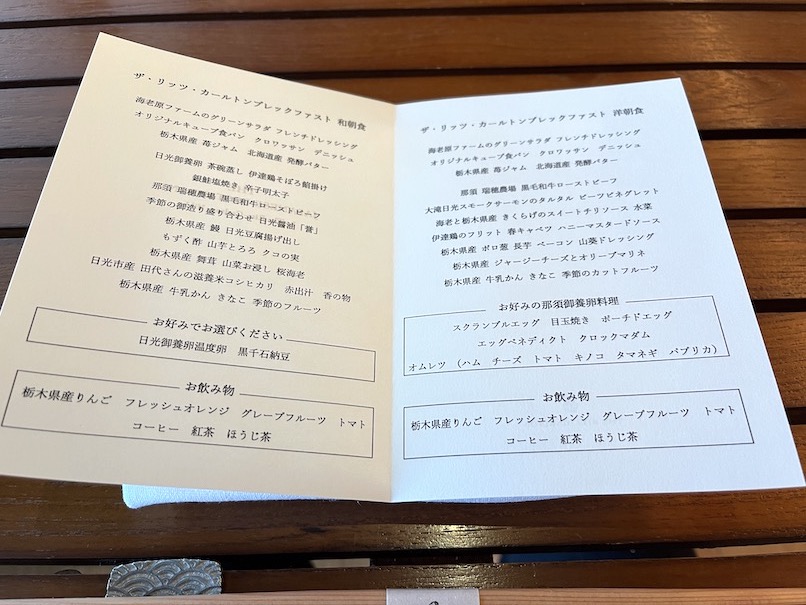 ザ・リッツ・カールトンブレックファスト 和朝食
海老原ファームのグリーンサラダ フレンチドレッシング
オリジナルキューブ食パン クロワッサン デニッシュ
栃木県産 苺ジャム 北海道産 発酵バター
日光御養卵 茶碗蒸し 伊達鶏そぼろ餡掛け
銀鮭塩焼き 辛子明太子
那須 瑞穂農場 黒毛和牛ローストビーフ
季節の御造り盛り合わせ 日光醤油「誉」
栃木県産 鰻 日光豆腐揚げ出し
もずく酢 山芋とろろ クコの実
栃木県産 舞茸 山菜お浸し 桜海老
日光市産 田代さんの滋養米コシヒカリ 赤出汁 香の物
栃木県産 牛乳かん きなこ 季節のフルーツ
お好みでお選びください
日光御養卵温度卵 黒千石納豆
お飲み物
栃木県産りんご フレッシュオレンジ グレープフルーツ トマト
コーヒー 紅茶 ほうじ茶
ザ・リッツ・カールトンブレックファスト 洋朝食
海老原ファームのグリーンサラダ フレンチドレッシング
オリジナルキューブ食パン クロワッサン デニッシュ
栃木県産 苺ジャム 北海道産 発酵バター
那須 瑞穂農場 黒毛和牛ローストビーフ
大滝日光スモークサーモンのタルタル ビーツビネグレット
海老と栃木県産 きくらげのスイートチリソース 水菜
伊達鶏のフリット 春キャベツ ハニーマスタードソース
栃木県産 ポロ葱 長芋 ベーコン 山葵ドレッシング
栃木県産 ジャージーチーズとオリーブマリネ
栃木県産 牛乳かん きなこ 季節のカットフルーツ
お好みの那須御養卵料理
スクランブルエッグ 目玉焼き ポーチドエッグ
エッグベネディクト クロックマダム
オムレツ （ハム チーズ トマト キノコ タマネギ パプリカ）
お飲み物
栃木県産りんご フレッシュオレンジ グレープフルーツ トマト
コーヒー 紅茶 ほうじ茶